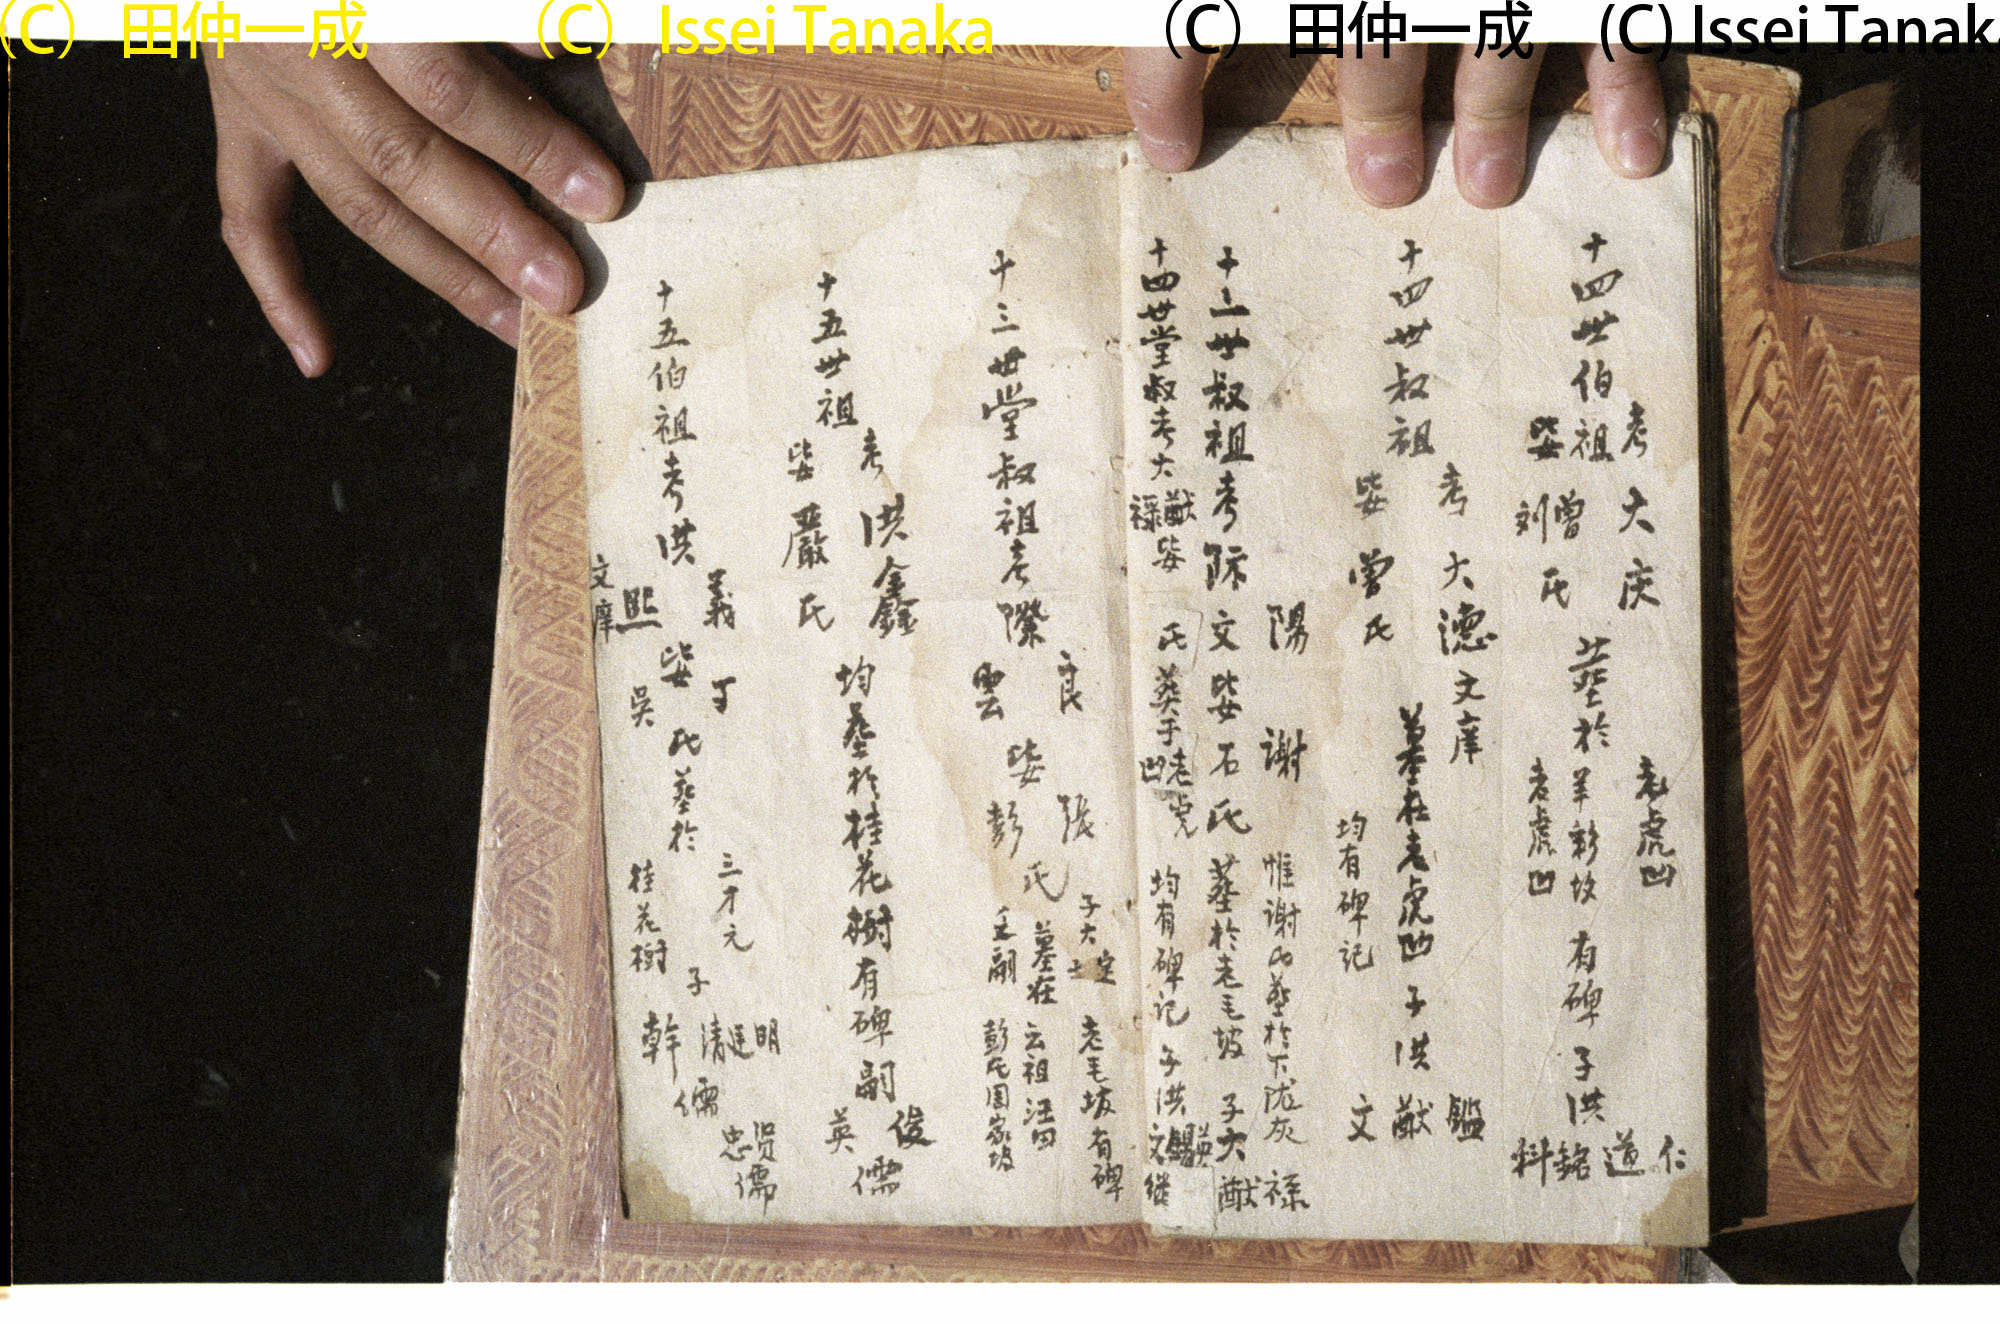 (C) 田仲一成 (C) Issei Tanaka (C) 田仲一成 (C) Issei Tanaka
十四世伯祖
考 大庆
妣 曾 刘 氏
葬於
老虎凹
羊新坟
老虎凹
有碑 子洪
仁 道 銘 科
十四世叔祖
考 大德 文庠
妣 曾氏
墓在老虎凹 子洪
均有碑记
鑑 猷 文
十三世叔祖考际
陽 文 妣 謝 石 氏
惟謝氏葬於下泷灰
葬於老毛坡 子大
禄 猷
十四世堂叔考大
猷 禄 妣
氏 葬于老虎凹
均有碑记 子洪
英 錫 文 继
十三世堂叔祖考際
良 雲 妣 張 彭 氏
子大 定 士
墓在
老毛坡有碑
云祖汪田
彭氏国家坡
十五世祖
考 洪鑫
妣 嚴氏
均葬於桂花樹有碑嗣
俊 英 儒
十五伯祖考洪
義 熙 文庠
妣 丁 吳 氏葬於
三才元
桂花樹
子
明 廷 清 幹 儒
贤 忠 儒